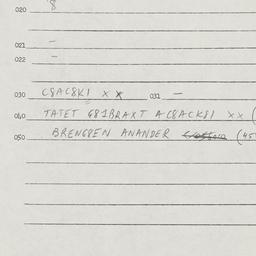 020 8
021 —
022 —
030 C8AC8K1 X X 031 —
040 TATET 681BRAXT A C8ACK81 XX (
050 BRENG8EN ANANDER (45